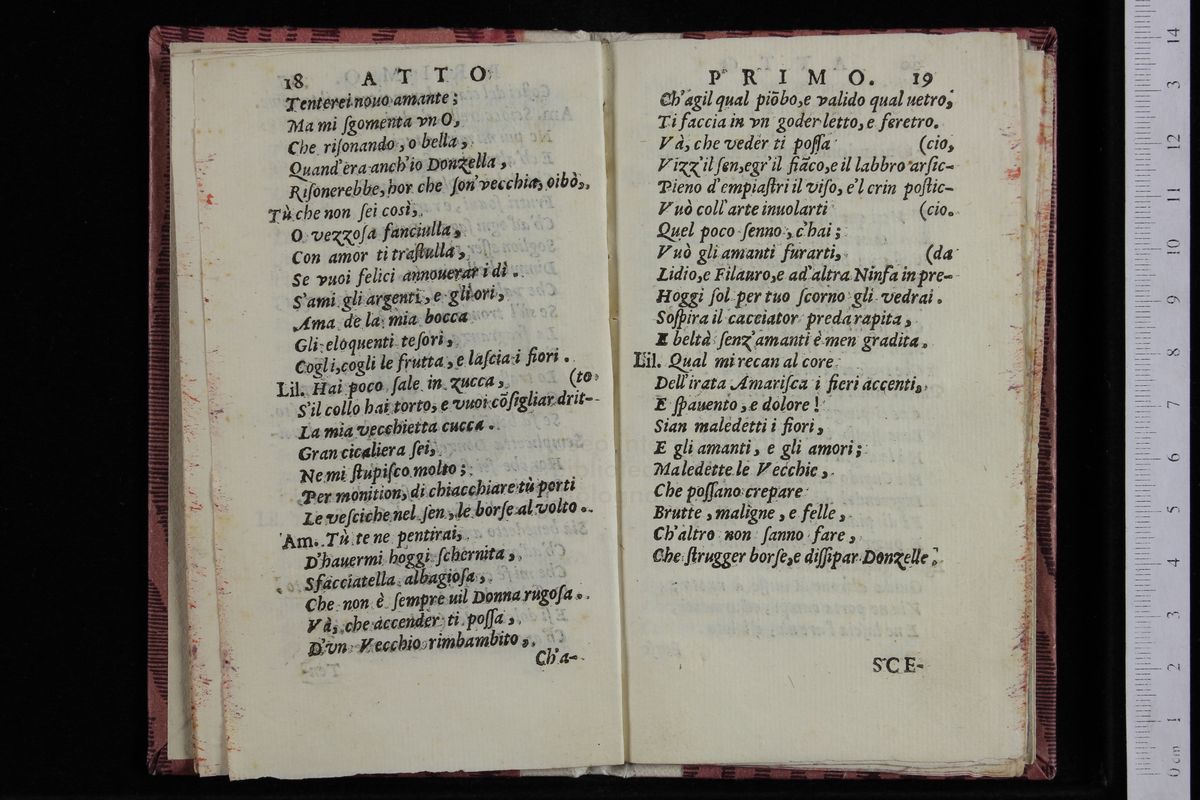 18 ATTO
Tenterei nouo amante;
Ma mi ſgomenta vn O,
Che riſonando, o bella,
Quand'era anch'io Donzella,
Riſonerebbe, hor che ſon' vecchia, oibò,
Tù che non ſei così,
O vezzoſa fanciulla,
Con amor ti traſtulla,
Se vuoi felici annouerar i dì.
S'ami gli argenti, e gli ori,
Ama de la mia bocca
Gli eloquenti teſori,
Cogli, cogli le frutta, e laſcia i fiori.
Lil. Hai poco ſale in zucca, (to
S'il collo hai torto, e vuoi cõſigliar drit-
La mia vecchietta cucca.
Gran cicaliera ſei,
Ne mi ſtupiſco molto;
Per monition, di chiacchiare tù porti
Le veſciche nel ſen, le borſe al volto.
Am. Tù te ne pentirai,
D'hauermi hoggi ſchernita,
Sfacciatella albagioſa,
Che non è ſempre uil Donna rugoſa.
Và, che accender ti poſſa,
D'vn Vecchio rimbambito,
Ch'a-
PRIMO. 19
Ch'agil qual piõbo, e valido qual uetro,
Ti faccia in vn goder letto, e feretro.
Và, che veder ti poſſa (cio,
Vizz'il ſen, egr'il fiãco, e il labbro arſic-
Pieno d'empiaſtri il viſo, e'l crin poſtic-
Vuò coll'arte inuolarti (cio.
Quel poco ſenno, c'hai;
Vuò gli amanti furarti, (da
Lidio, e Filauro, e ad'altra Ninfa in pre-
Hoggi ſol per tuo ſcorno gli vedrai.
Soſpira il cacciator preda rapita,
E beltà ſenz'amanti è men gradita.
Lil. Qual mi recan al core
Dell'irata Amariſca i fieri accenti,
E ſpauento, e dolore!
Sian maledetti i fiori,
E gli amanti, e gli amori;
Maledette le Vecchie,
Che poſſano crepare
Brutte, maligne, e felle,
Ch'altro non ſanno fare,
Che ſtrugger borſe, e diſſipar Donzelle.
SCE-